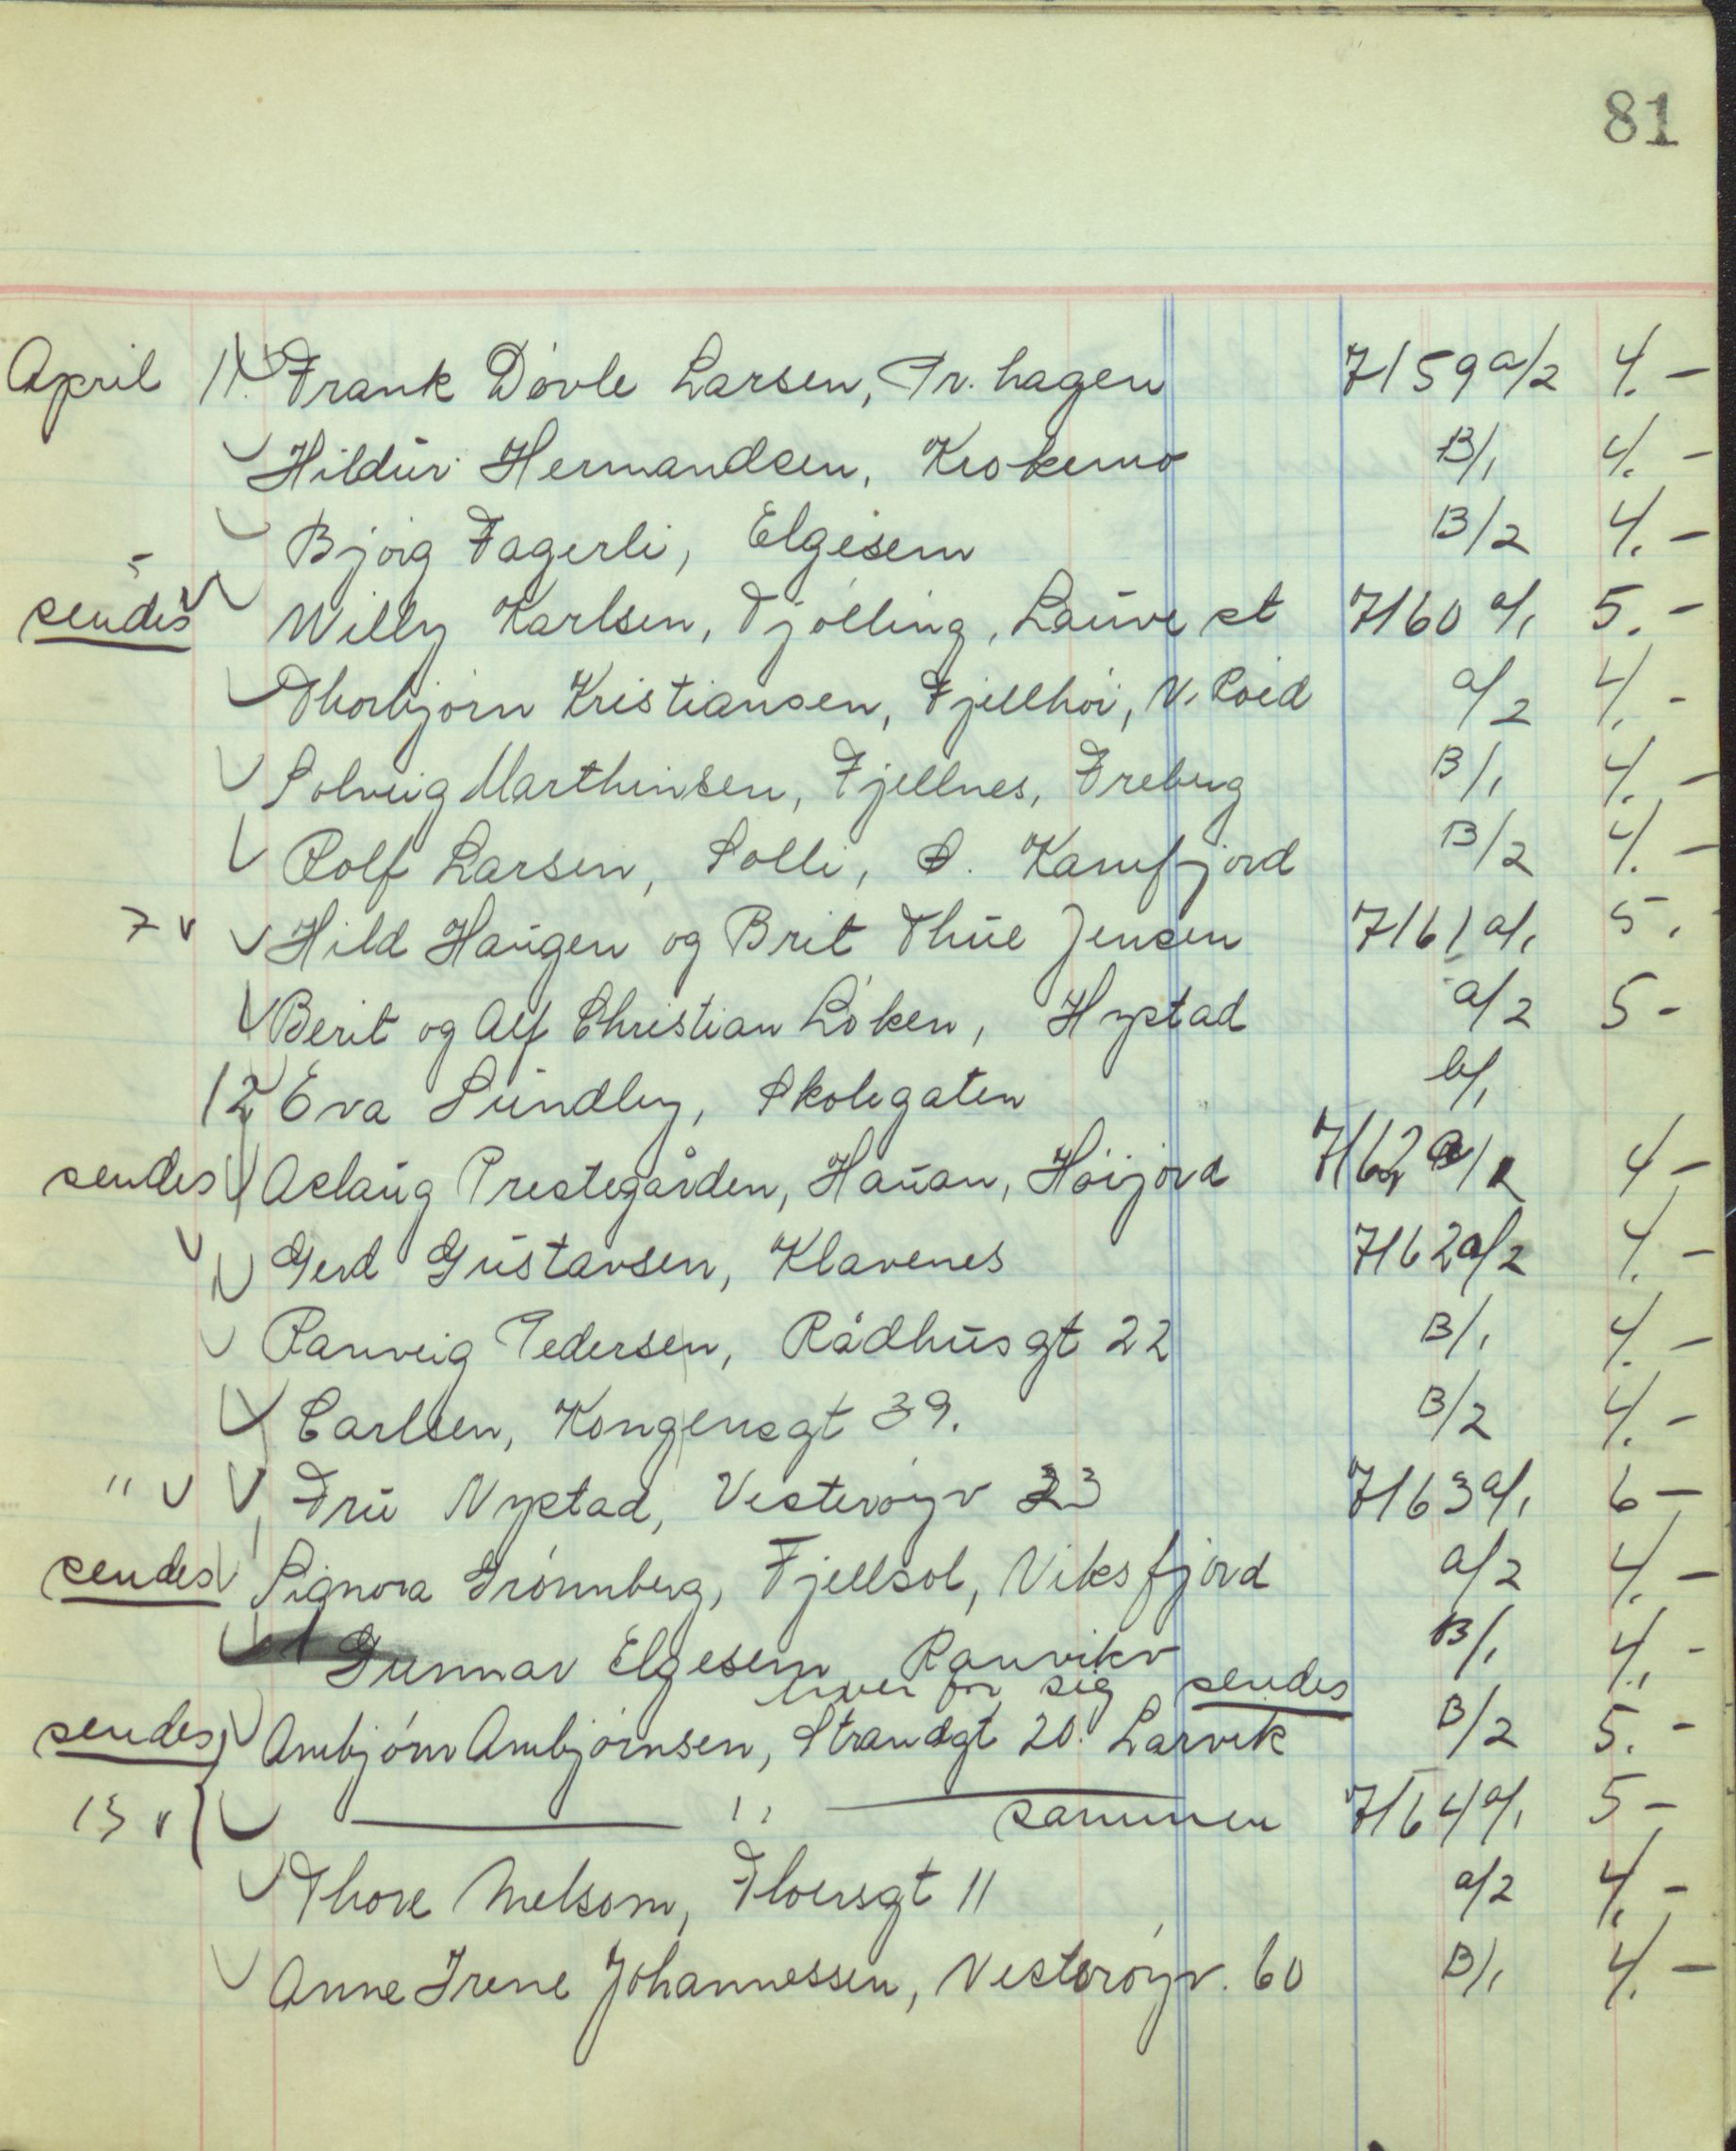 81
April 11. Frank Døvle Larsen, Pr. hagen 7159 a/2 4. -
Hildur Hermandsen, Krokemo B/1 4. -
Bjørg Fagerli, Elgesem B/2 4. -
5
sendes Willy Karlsen, Tjølling, Lauve st 7160 a/1 5. -
Thorbjørn Kristiansen, Fjellhøi, N. Roid a/2 4. -
Solveig Marthinsen, Fjellnes, Freberg B/1 4. -
Rolf Larsen, Solli, S. Kamfjord B/2 4. -
7 v Hild Haugen og Brit Thue Jensen 7161 a/1 5.
Berit og Alf Christian Løken, Hystad a/2 5 -
12 Eva Sundby, Skolegaten b/1
sendes Aslaug Prestegården, Hauan, Høijord 7162 4 -
Gerd Gustavsen, Klavenes 7162 a/2 4. -
Ranveig Pedersen, Rådhusgt 22 B/1 4. -
Carlsen, Kongensgt 39. B/2 4. -
" v Fru Nystad, Vesterøyv 33 7163 a/1 6 -
sendes Signora Grønnberg, Fjellsol, Viksfjord a/2 4. -
Gunnar Elgesem Ranvikv B/1 4. -
hver for sig sendes
sendes Arnbjørn Arnbjørnsen, Strandgt 20. Larvik B/2 5. -
13 v " sammen 7164 a/1 5 -
Thore Melsom, Thorsgt 11 a/2 4. -
Anne Irene Johannessen, Vesterøyv. 60 B/1 4. -